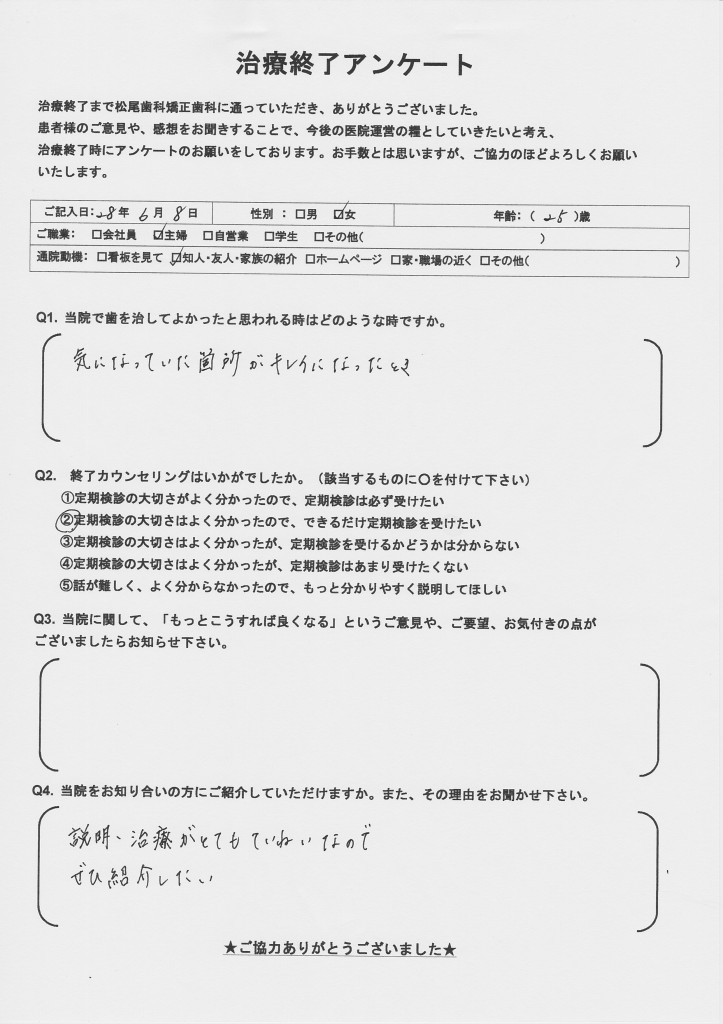 治療終了アンケート
治療終了まで松尾歯科矯正歯科に通っていただき、ありがとうございました。
患者様のご意見や、感想をお聞きすることで、今後の医院運営の糧としていきたいと考え、
治療終了時にアンケートのお願いをしております。お手数とは思いますが、ご協力のほどよろしくお願い
いたします。
ご記入日：28年 6月 8日 性別 ： □男 ☑女 年齢：（ 25 ）歳
ご職業： □会社員 ☑主婦 □自営業 □学生 □その他（ ）
通院動機： □看板を見て ☑知人・友人・家族の紹介 □ホームページ □家・職場の近く □その他（ ）
Q1. 当院で歯を治してよかったと思われる時はどのような時ですか。
気になっていた箇所がキレイになったとき
Q2. 終了カウンセリングはいかがでしたか。（該当するものに〇を付けて下さい）
①定期検診の大切さがよく分かったので、定期検診は必ず受けたい
②定期検診の大切さはよく分かったので、できるだけ定期検診を受けたい
③定期検診の大切さはよく分かったが、定期検診を受けるかどうかは分からない
④定期検診の大切さはよく分かったが、定期検診はあまり受けたくない
⑤話が難しく、よく分からなかったので、もっと分かりやすく説明してほしい
Q3. 当院に関して、「もっとこうすれば良くなる」というご意見や、ご要望、お気付きの点が
ございましたらお知らせ下さい。
Q4. 当院をお知り合いの方にご紹介していただけますか。また、その理由をお聞かせ下さい。
説明、治療がとてもていねいなので
ぜひ紹介したい
★ご協力ありがとうございました★